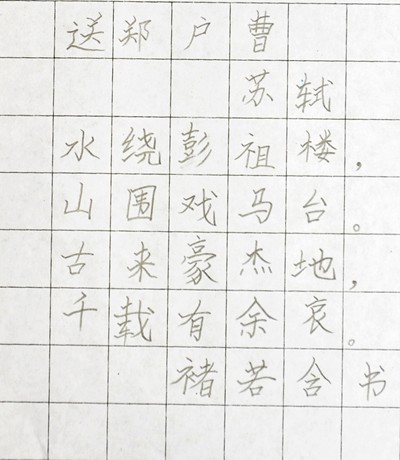 送郑户曹
苏轼
水绕彭祖楼，
山围戏马台。
古来豪杰地，
千载有余哀。
褚若含书